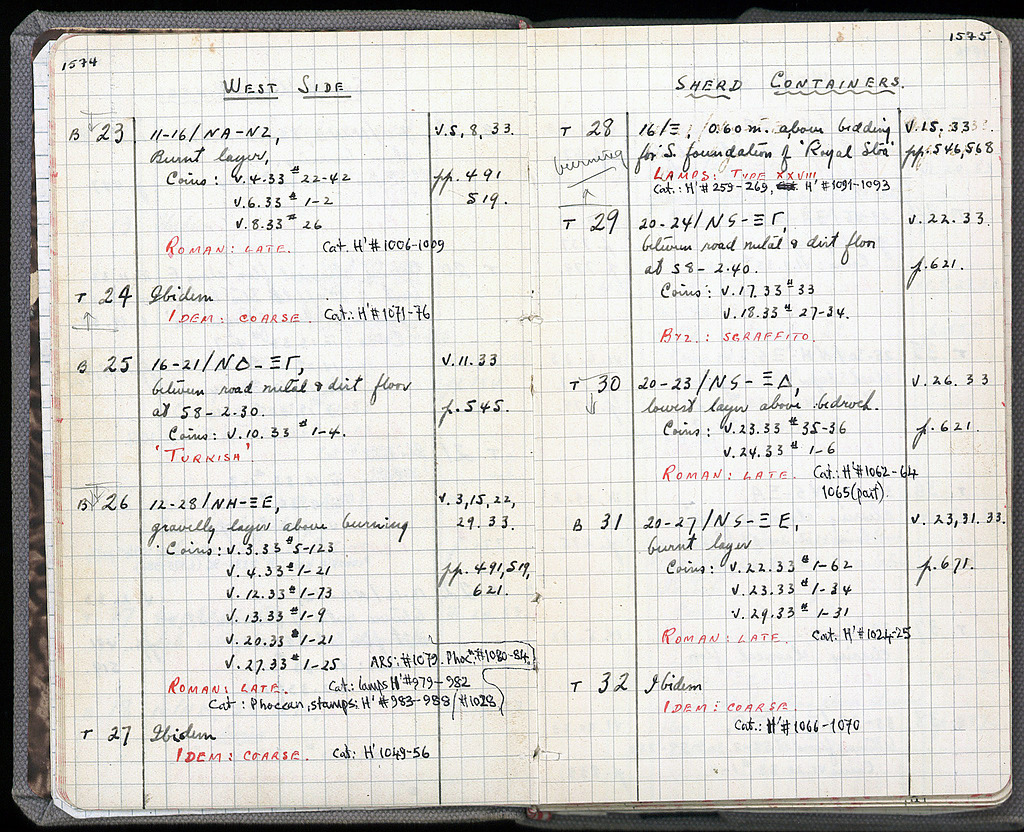 1574
WEST SIDE
B 23 11-16/ΝΑ-ΝΖ, V.5, 8, 33.
Burnt layer,
Coins: V.4.33 # 22-42 pp. 491
V.6.33 # 1-2 519.
V.8.33 # 26
ROMAN: LATE. Cat. H' # 1006-1009
T 24 Ibidem
IDEM: COARSE. Cat.: H' # 1071-76
B 25 16-21/ΝΔ-ΞΓ, V.11.33
between road metal & dirt floor
at 58-2.30. p. 545.
Coins: V.10.33 # 1-4.
'TURKISH'
B 26 12-28/ΝΗ-ΞΕ, V.3,15,22,
gravelly layer above burning 29.33.
Coins: V.3.33 # 5-123
V.4.33 # 1-21 pp. 491, 519,
V.12.33 # 1-73 621.
V.13.33 # 1-9
V.20.33 # 1-21
V.27.33 # 1-25 ARS: #1079. Phoc: #1080-84.
ROMAN: LATE. Cat.: lamps H' # 979-982
Cat: Phocean, stamps: H' # 983-988 / #1028
T 27 Ibidem
IDEM: COARSE. Cat: H' 1049-56
1575
SHERD CONTAINERS.
T 28 16/Ξ, /0.60 m. above bedding V.15, 33.
burning for S. foundation of 'Royal Stoa' pp. 546,568
LAMPS: TYPE XXVIII
Cat.: H' # 259-269, H' # 1091-1093
T 29 20-24/ΝS-ΞΓ V.22.33.
between road metal & dirt floor
at 58-2.40. p. 621.
Coins: V.17.33 # 33
V.18.33 # 27-34.
BYZ.: SGRAFFITO.
T 30 20-23/ΝS-ΞΔ, V.26.33
lowest layer above bedrock.
Coins: V.23.33 # 35-36 p. 621.
V.24.33 # 1-6
ROMAN: LATE. Cat: H' # 1062-64
1065(part)
B 31 20-27/ΝS-ΞΕ, V.23,31.33.
burnt layer
Coins: V.22.33 # 1-62 p. 671.
V.23.33 # 1-34
V.29.33 # 1-31
ROMAN: LATE. Cat: H' # 1024-25
T 32 Ibidem
IDEM: COARSE
Cat.: H' # 1066-1070